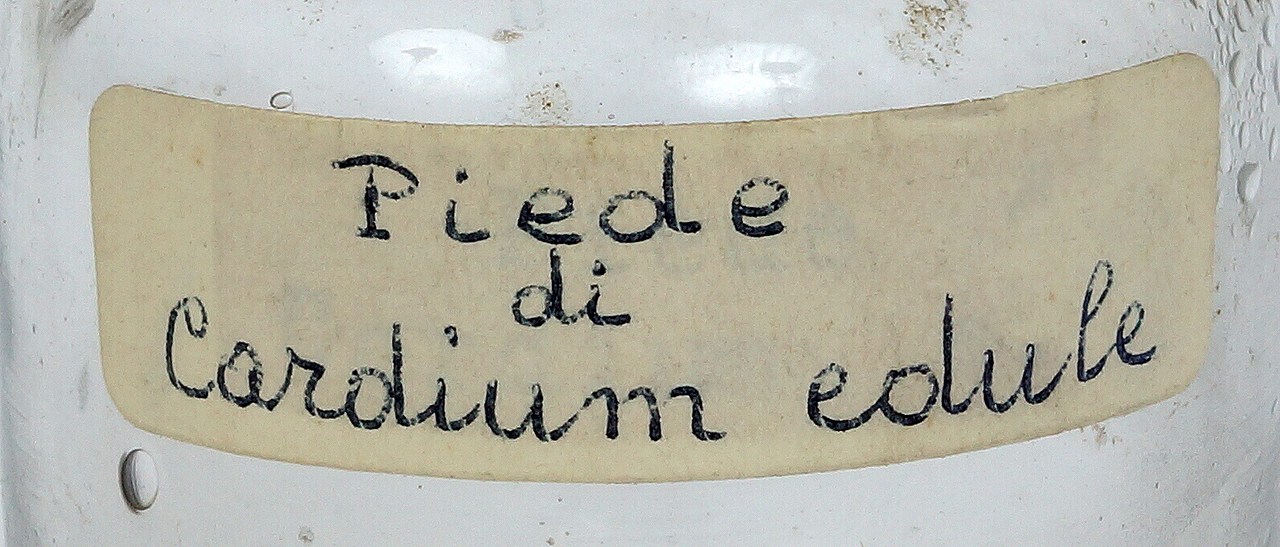 Piede
di
Cardium edule